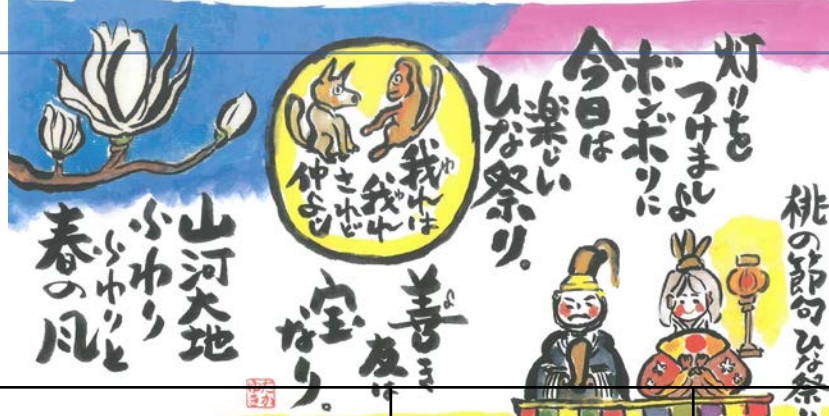 桃の節句ひな祭り
灯りを
つけましよ
ボンボリに
今日は
楽しい
ひな祭り。
我れは
我れ
されど
仲よし
善き
友は
宝
なり。
山河大地
ふわり
ふわりと
春の風